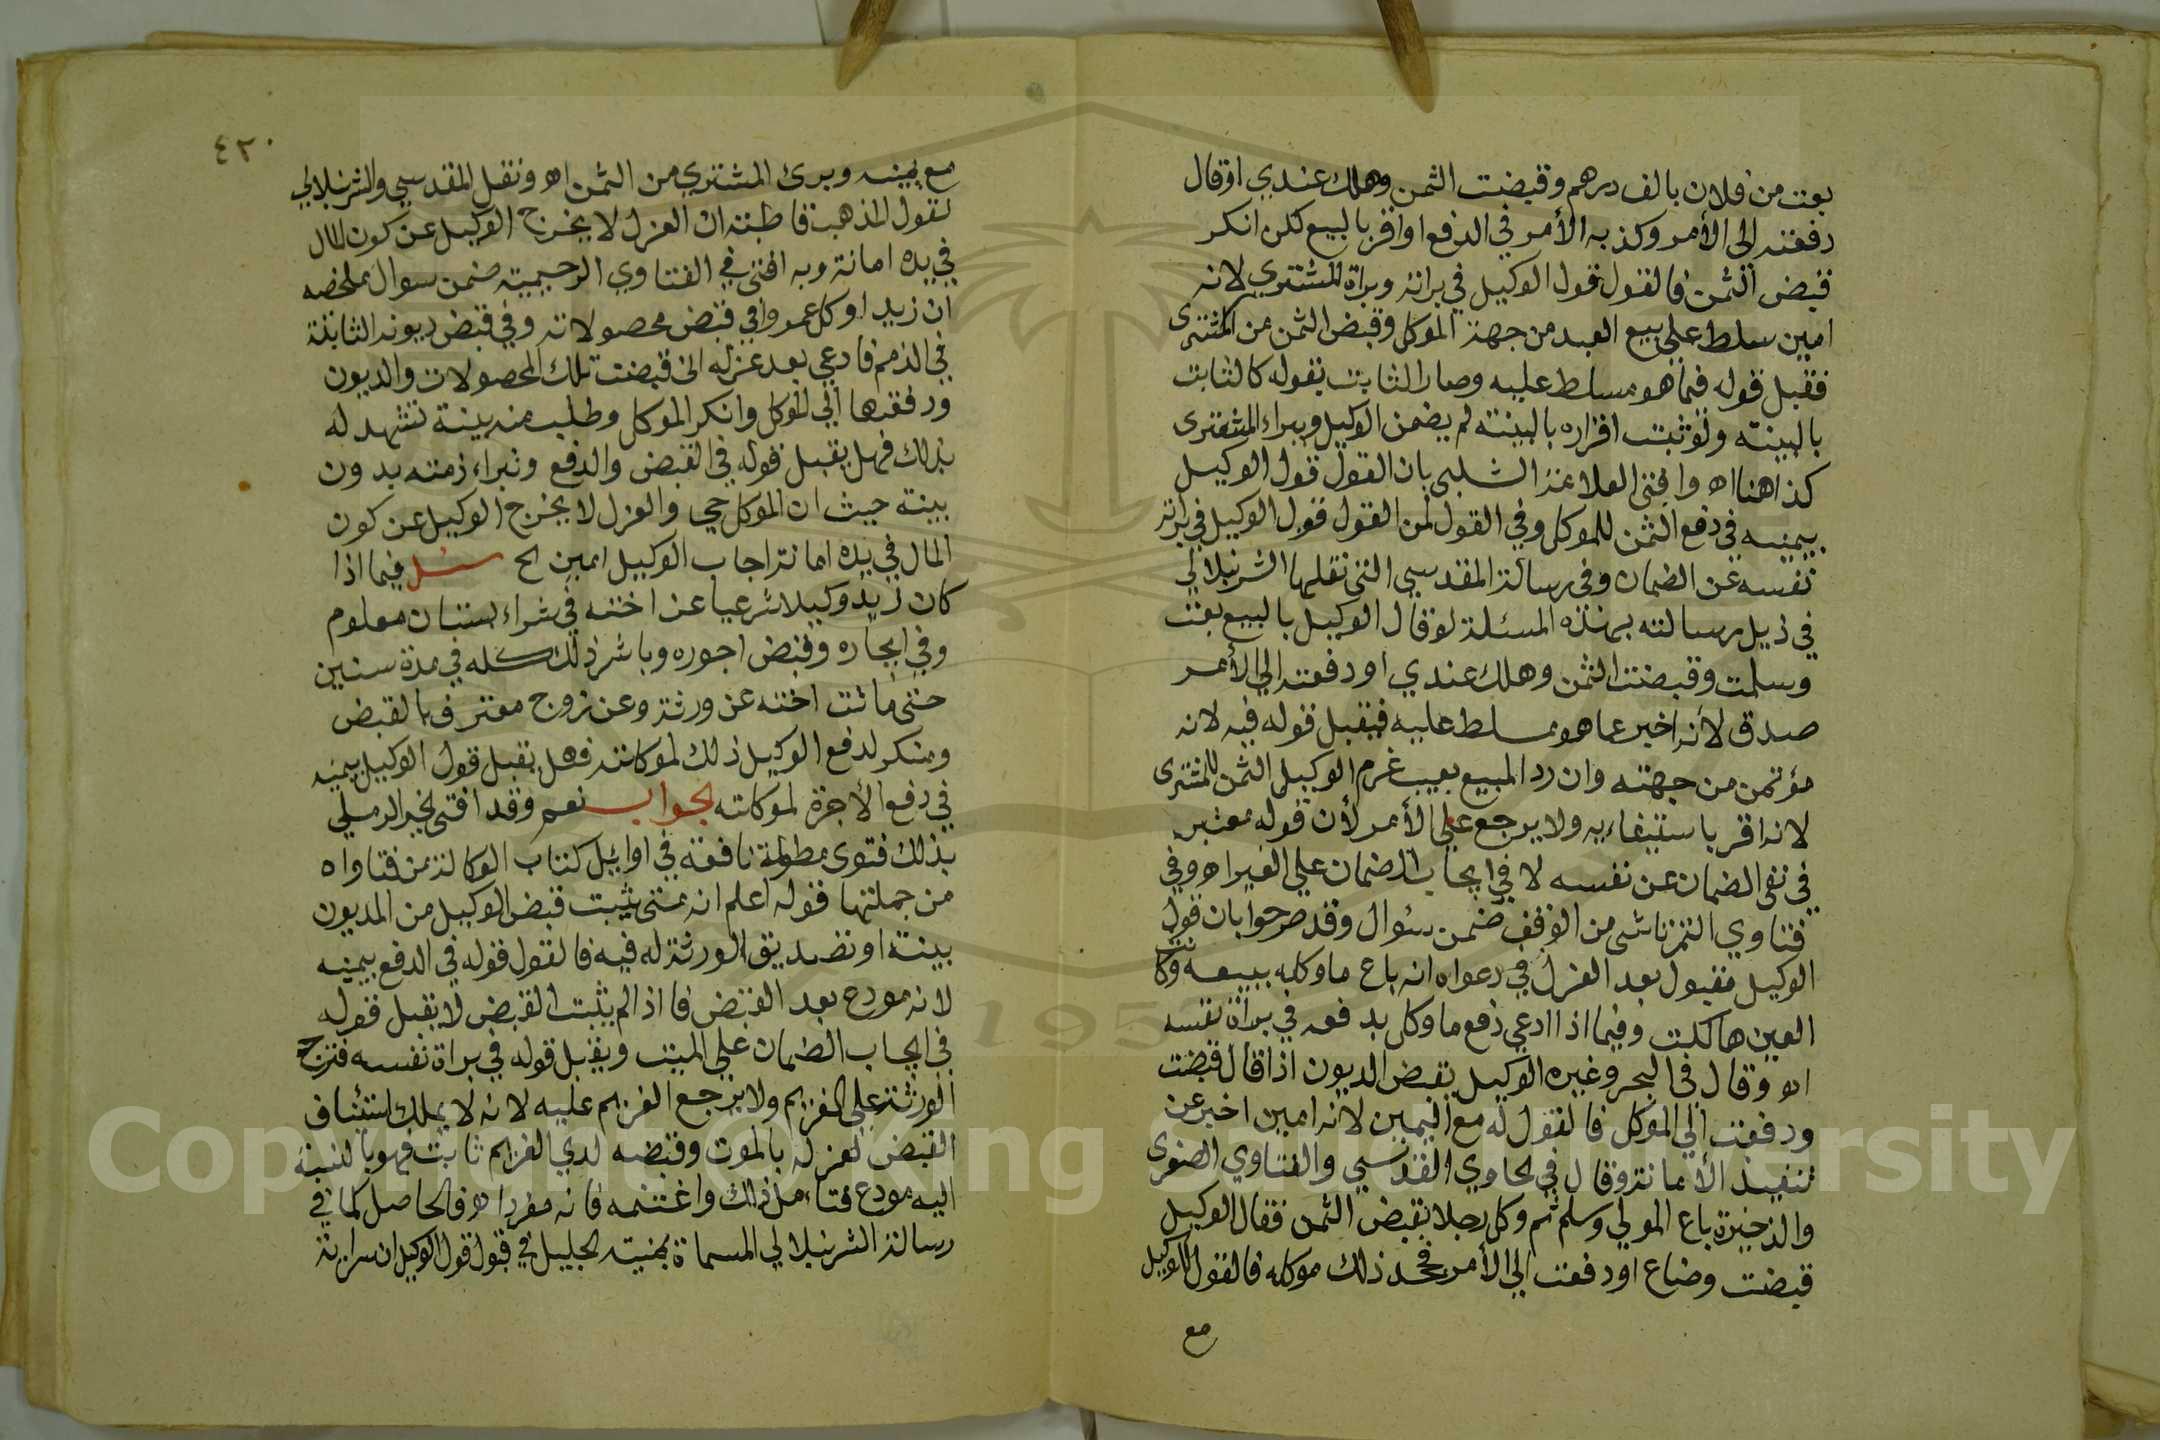 بعت من فلان بالف درهم وقبضت الثمن وهلك عندي او قال
دفعته الى الأمر وكذبه الأمر في الدفع او اقر بالبيع لكن انكر
قبض الثمن فالقول قول الوكيل في براته وبراة المشتري لانه
امين سلط على بيع العبد من جهة الموكل وقبض الثمن من المشترى
فقبل قوله فيما هو مسلط عليه وصار الثابت بقوله كالثابت
بالبينة ولو ثبت اقراره بالبينة لم يضمن الوكيل ويبراء المشترى
كذا هنا اه وافتى العلامة الشلبى بان القول قول الوكيل
بيمينه في دفع الثمن للموكل وفي القول لمن القول قول الوكيل في براته
نفسه عن الضمان وفى رسالة المقدسي التى نقلها الشرنبلالي
في ذيل رسالته بهذه المسئلة لو قال الوكيل بالبيع بعت
وسلمت وقبضت الثمن وهلك عندي او دفعته الى الأمر
صدق لأنه اخبر عما هو مسلط عليه فيقبل قوله فيه لانه
مؤتمن من جهته وان رد المبيع بعيب غرم الوكيل الثمن للمشترى
لانه اقر باستيفاءيه ولا يرجع على الأمر لأن قوله معتبر
في نفى الضمان عن نفسه لا في ايجاب الضمان على الغير اه وفي
فتاوي التمرتاشى من الوقف ضمن سئوال وقد صرحوا بان قول
الوكيل مقبول بعد العزل في دعواه انه باع ما وكل ببيعه وكانت
العين هالكت وفيما اذا ادعى دفع ما وكل بدفعه في براة نفسه
اه وقال في البحر وغيره الوكيل بقبض الديون اذا قال قبضت
ودفعت الي الموكل فالقول له مع اليمين لانه امين اخبر عن
تنفيذ الأمانة وقال في الحاوي القدسي والفتاوي الصغرى
والذخيرة باع المولي وسلم ثم وكل رجلا بقبض الثمن فقال الوكيل
قبضت وضاع او دفعت الى الأمر فجحد ذلك موكله فالقول للوكيل
مع
٤٢٠
مع يمينه وبرئ المشتري من الثمن اه ونقل المقدسي والشرنبلالي
نقول المذهب قاطبة ان العزل لا يخرج الوكيل عن كون المال
في يده امانة وبه افتى في الفتاوي الرحيمية ضمن سوال ملخصه
ان زيدا وكل عمروا في قبض محصولاته وفي قبض ديونه الثابتة
في الذمم فادعى بعد عزله انى قبضت تلك المحصولات والديون
ودفعتها الي الموكل وانكر الموكل وطلب منه بينة تشهد له
بذلك فهل يقبل قوله في القبض والدفع وتبراء ذمته بدون
بينة حيث ان الموكل حي والعزل لا يخرج الوكيل عن كون
المال في يده امانة اجاب الوكيل امين الخ سئل فيما اذا
كان زيد وكيلا شرعيا عن اخته في شراء بستان معلوم
وفي ايجاره وقبض اجوره وباشر ذلك كله في مدة سنين
حتى ماتت اخته عن ورثة وعن زوج معترف بالقبض
ومنكر لدفع الوكيل ذلك لموكلته فهل يقبل قول الوكيل بيمينه
في دفع الأجرة لموكلته الجواب نعم وقد افتى الخير الرملي
بذلك فتوى مطولة نافعة في اوائل كتاب الوكالة من فتاواه
من جملتها قوله اعلم انه متى يثبت قبض الوكيل من المديون
بينة او تصديق الورثة له فيه فالقول قوله في الدفع بيمينه
لانه مودع بعد القبض فاذا لم يثبت القبض لا يقبل قوله
في ايجاب الضمان على الميت ويقبل قوله في براة نفسه فترجع
الورثة على الغريم ولا يرجع الغريم عليه لانه لا يملك استئناف
القبض لعزله بالموت وقبضه لدي الغريم ثابت فهو بالنسبة
اليه مودع فتاءمل ذلك واغتنمه فانه مفرد اه فالحاصل كما في
رسالة الشرنبلالي المسماة بمنية الجليل في قبول قول الوكيل
Copyright © King Saud University
195